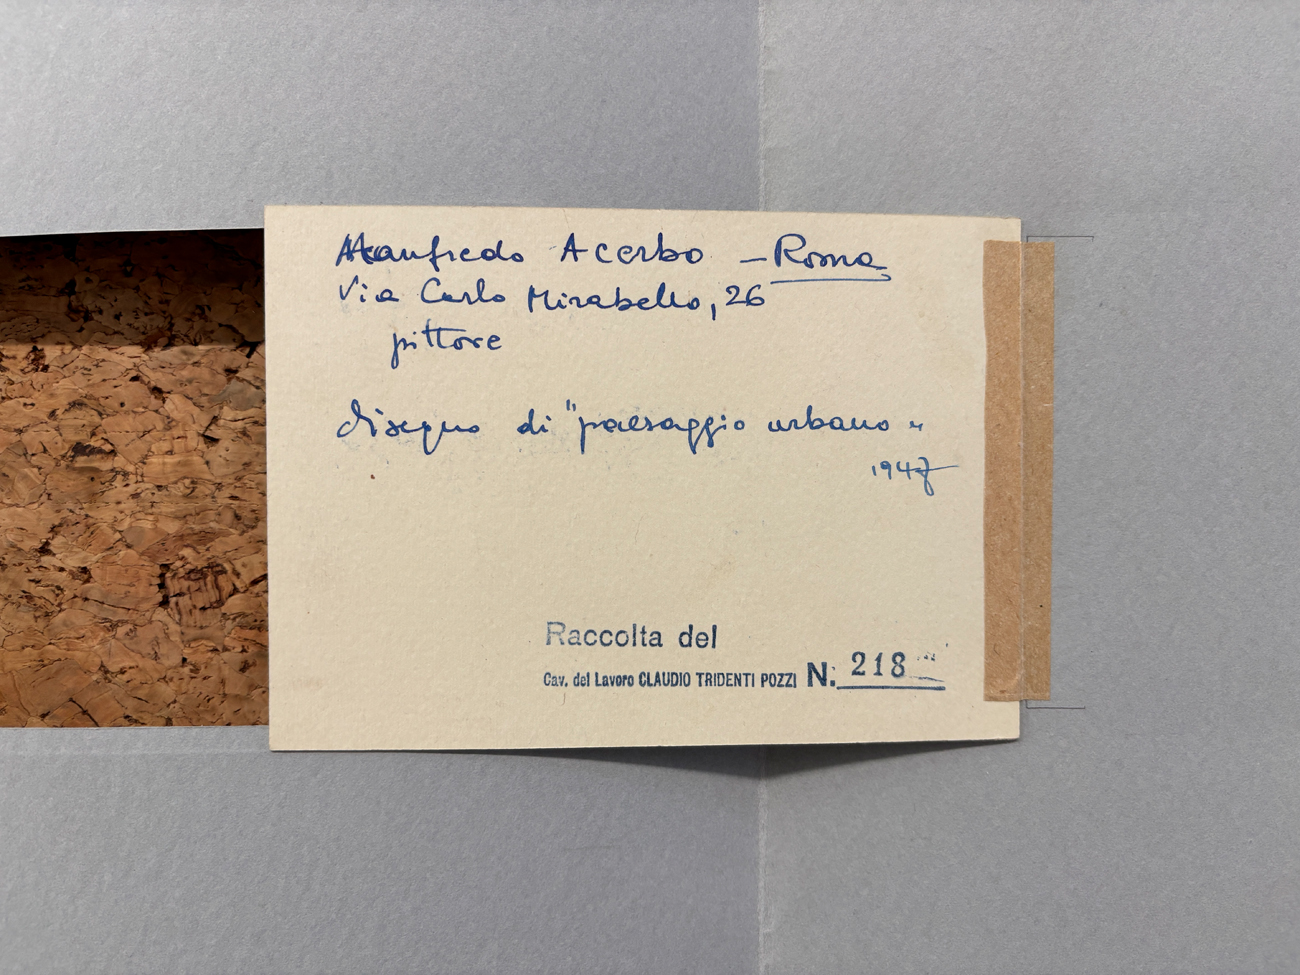 Manfredo Acerbo – Roma
Via Carlo Mirabello, 26
pittore
disegno di "paesaggio urbano"
1947
Raccolta del
Cav. del Lavoro CLAUDIO TRIDENTI POZZI N. 218